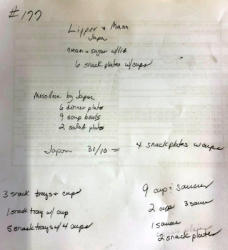 #177
Lipper + Mann
Japan
cream + sugar w/lid
6 snack plates w/cups
Mesoline by Japan
6 dinner plates
9 soup bowls
2 salad plates
Japan 31/10 =
4 snack plates w cups
3 snack trays + cups
1 snack tray w/ cup
5 snack trays w/ 4 cups
9 cup + saucer
2 cups 3 saucer
1 saucer
2 snack plates